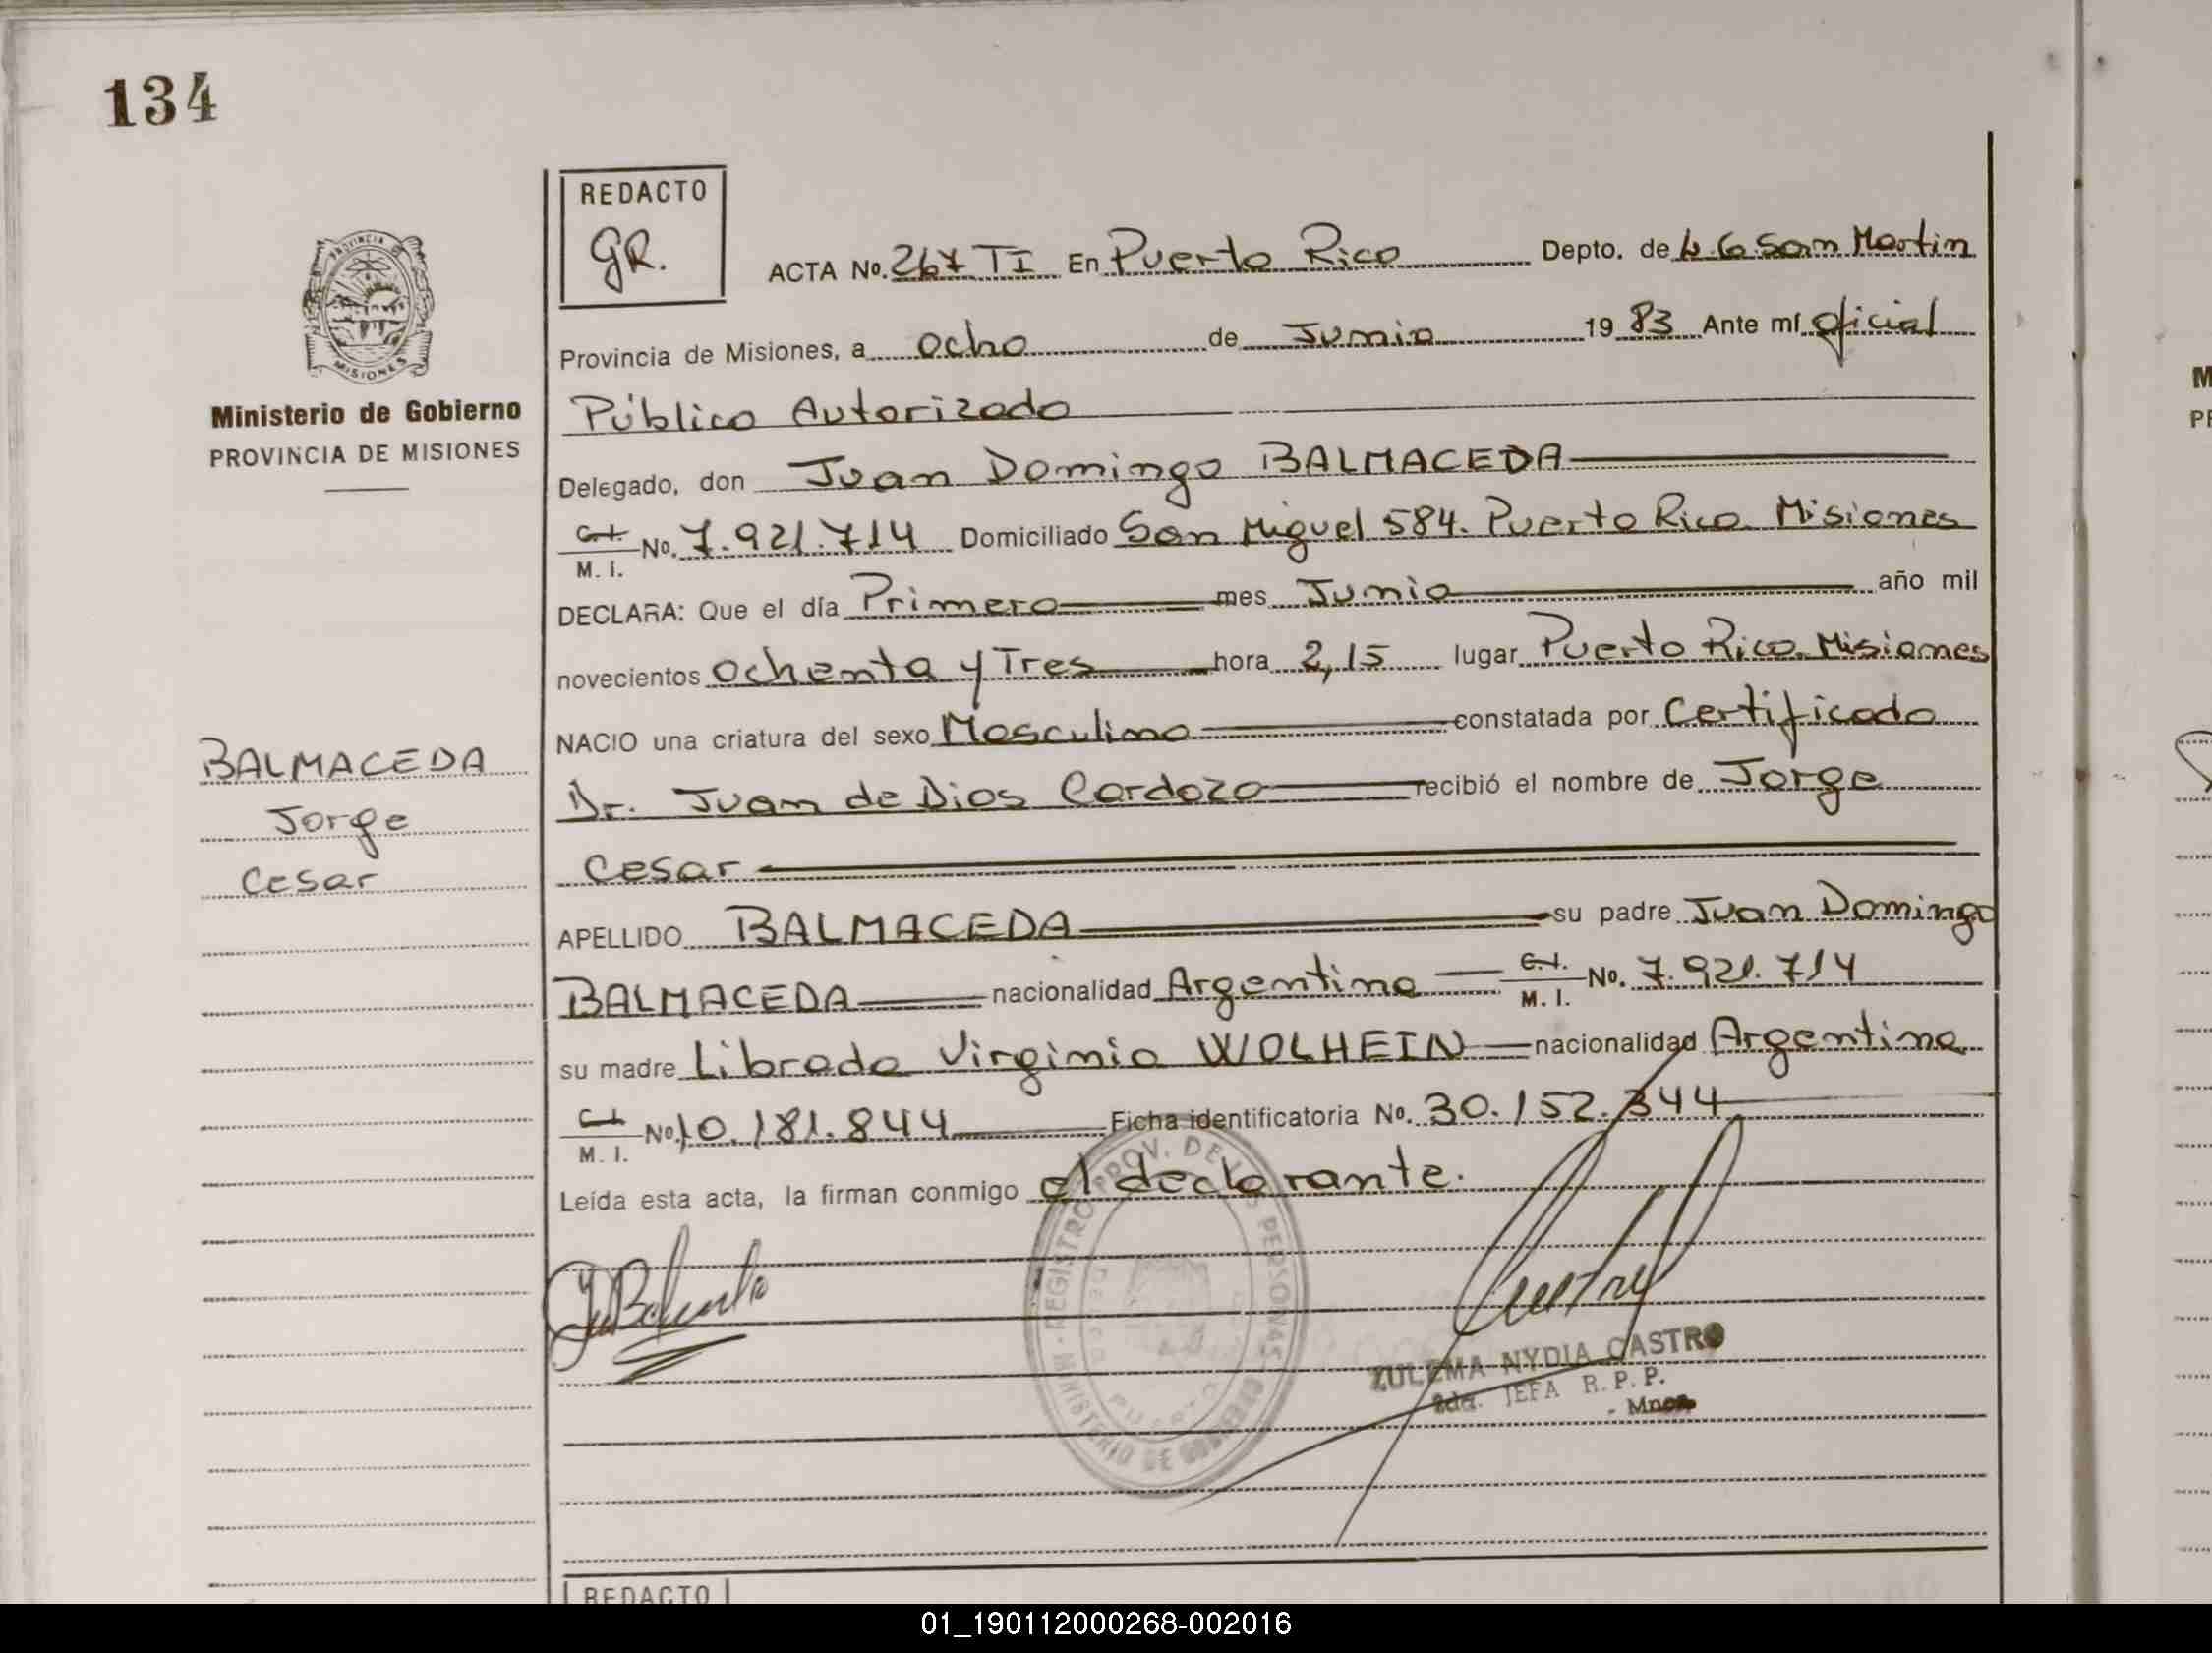 134
REDACTO
GR.
ACTA No. 267 TI En Puerto Rico Depto. de L. G. San Martin
Provincia de Misiones, a ocho de Junio 19 83 Ante mí oficial
Público Autorizado
Delegado, don Juan Domingo BALMACEDA
C.I. M. I. No. 7.921.714 Domiciliado San Miguel 584. Puerto Rico Misiones
DECLARA: Que el día Primero mes Junio año mil
novecientos ochenta y Tres hora 2,15 lugar Puerto Rico. Misiones
NACIO una criatura del sexo Masculino constatada por Certificado
Dr. Juan de Dios Cardozo recibió el nombre de Jorge
Cesar
APELLIDO BALMACEDA su padre Juan Domingo
BALMACEDA nacionalidad Argentina C.I. M. I. No. 7.921.714
su madre Librada Virginia WOLHEIN nacionalidad Argentina
C.I. M. I. No. 10.181.844 Ficha identificatoria No. 30.152.344
Leída esta acta, la firman conmigo el declarante.
Ministerio de Gobierno
PROVINCIA DE MISIONES
PROVINCIA DE
MISIONES
BALMACEDA
Jorge
Cesar
REGISTRO PROV. DE LAS PERSONAS
MINISTERIO DE GOBIERNO
PUERTO
ZULEMA NYDIA CASTRO
2da. JEFA R. P. P.
- Mnes
REDACTO
01_190112000268-002016